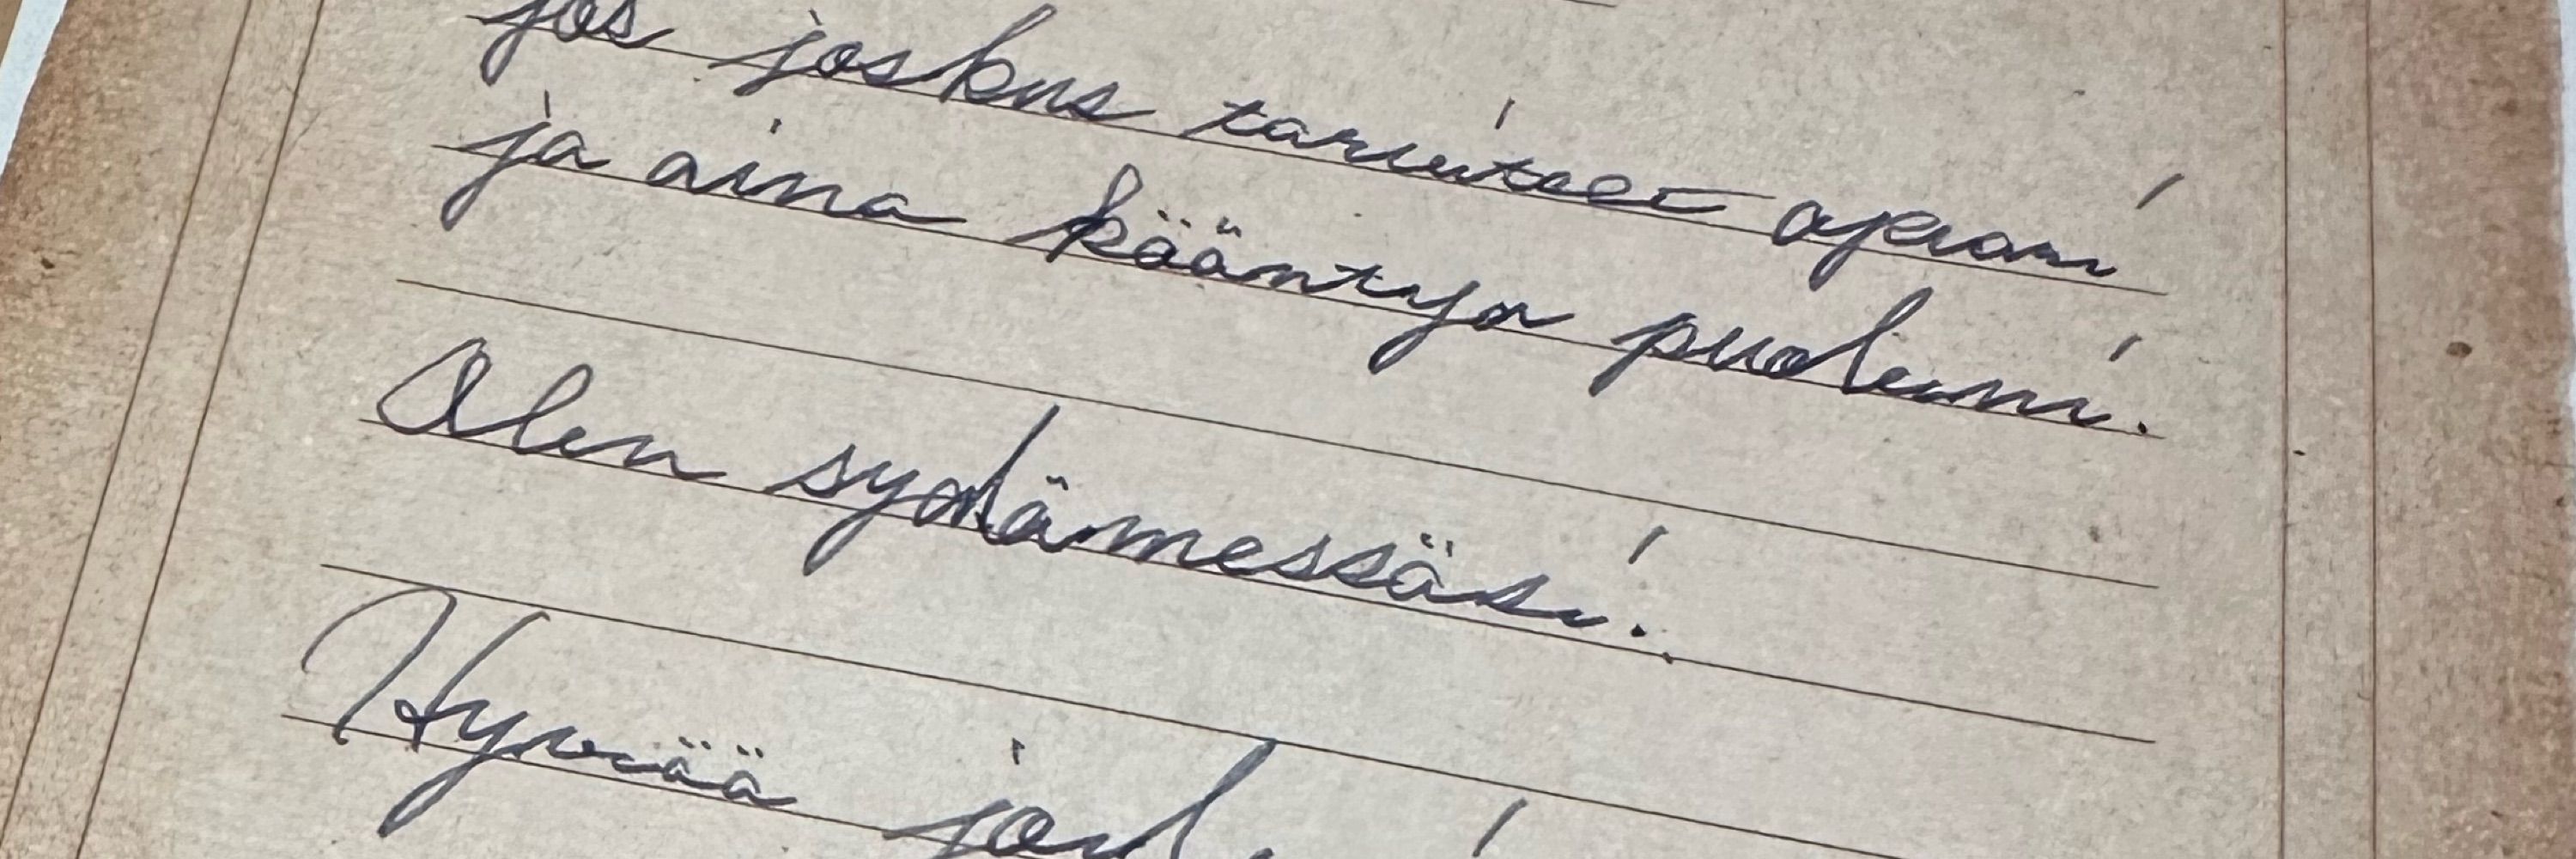 jos joskus tarvitset apuani
ja aina kääntyä puoleeni.
Olen sydämessäsi.
Hyvää